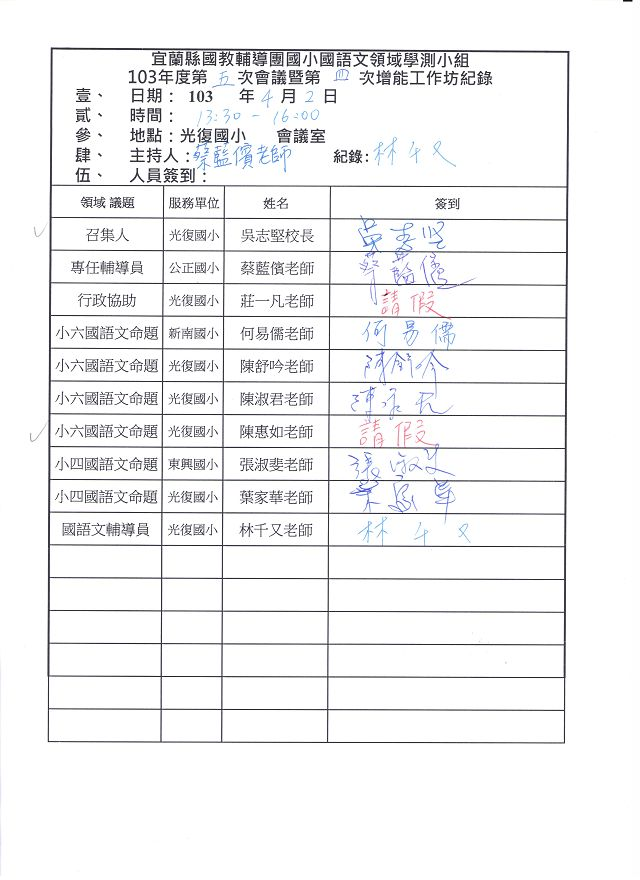 宜蘭縣國教輔導團國小國語文領域學測小組
103年度第 五 次會議暨第 四 次增能工作坊紀錄
壹、 日期： 103 年 4 月 2 日
貳、 時間： 13:30 - 16:00
參、 地點：光復國小 會議室
肆、 主持人：蔡藍儐老師 紀錄：林千又
伍、 人員簽到：
領域 議題 服務單位 姓名 簽到
召集人 光復國小 吳志堅校長 吳志堅
專任輔導員 公正國小 蔡藍儐老師 蔡藍儐
行政協助 光復國小 莊一凡老師 請假
小六國語文命題 新南國小 何易儒老師 何易儒
小六國語文命題 光復國小 陳舒吟老師 陳舒吟
小六國語文命題 光復國小 陳淑君老師
小六國語文命題 光復國小 陳惠如老師 請假
小四國語文命題 東興國小 張淑斐老師 張淑斐
小四國語文命題 光復國小 葉家華老師 葉家華
國語文輔導員 光復國小 林千又老師 林千又